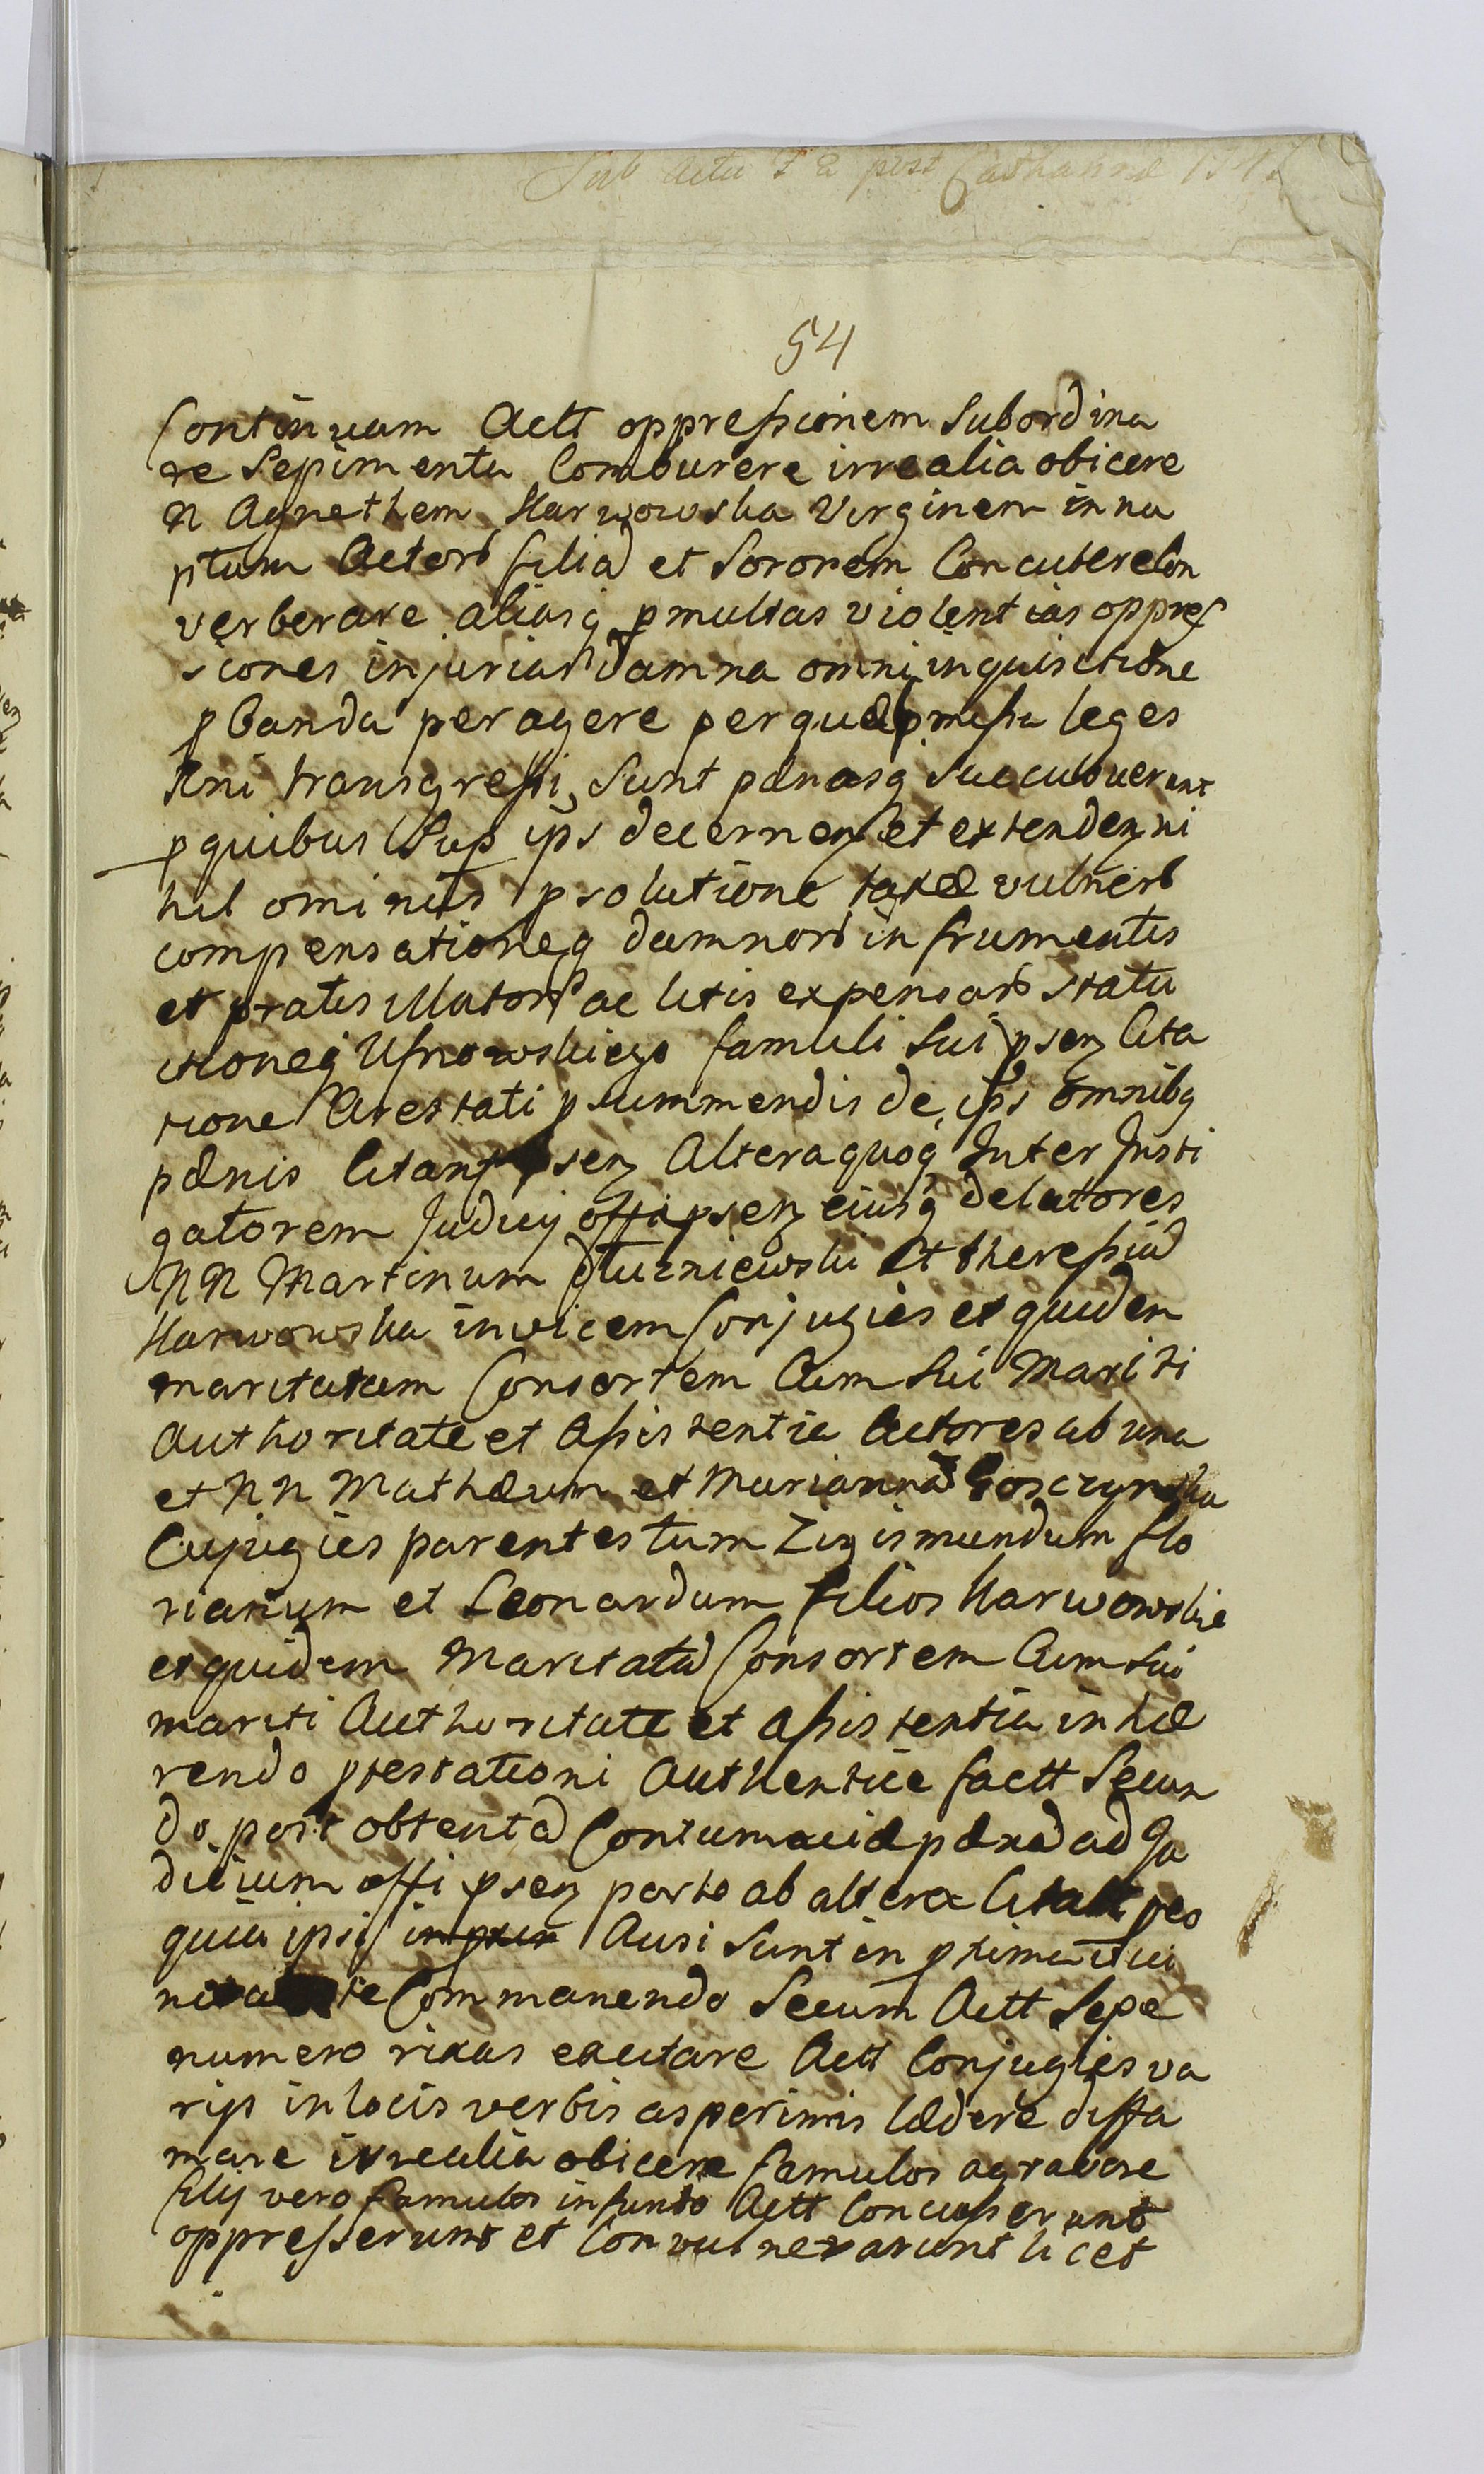 Sub Actu f a post Catharinæ
54
Continuam Actt oppressionem Subordina
re Sepimenta Comburere irrealia obicere
N Agnethem Karwowska Virginem innu
ptam Actorb filiã et Sororem Concuterè Con
verberare aliasq pmultas violentias oppres
siones injurias damna omni inquisitione
pbanda peragere per quæ pmissa leges
Rni transgressi Sunt pænasq Succubuerunt
pquibus Sup ips decernen et extenden ni
hil ominus psolutione taxæ vulnerb
compensationeq damnorb in frumentis
et pratis illatorb ac litis expensarb statu
itioneq Usnowskiego famuli Sui psen Cita
tione Arestati psummendis de ips omnibq
pænis Citant psen Altera quoq Inter Insti
gatorem Judicij offi psen ejusq delatores
NN Martinum Dłuzniewski Et theressiã
Karwowska invicem Conjugies et quidem
maritatam Consortem Cum Sui Mariti
Authoritate et Assistentia Actores ab una
et NN Mathæum et Mariannã Goszczynska
Cujugies parentes tum Zigismundum flo
rianum et Leonardum filios Karwowskie
et quidem Maritatã Consortem Cum Sui
mariti Authoritate et assistentia inhæ
rendo ptestationi Authentice factt Secun
do post obtentã Contumaciæ pænã ad Ju
dicium offi psen parte ab altera Citatt peo
quia ipsi Ausi Sunt in ptima vici
nitate Commanendo Secum Actt Sepe
numero rixas excitare Actt Conjugies va
rijs in locis verbis asperimis lædere diffa
mare irrealia obicere famulos agravare
filij vero famulos in fundo Actt Concusserunt
oppresserunt et Convulnerarunt licet